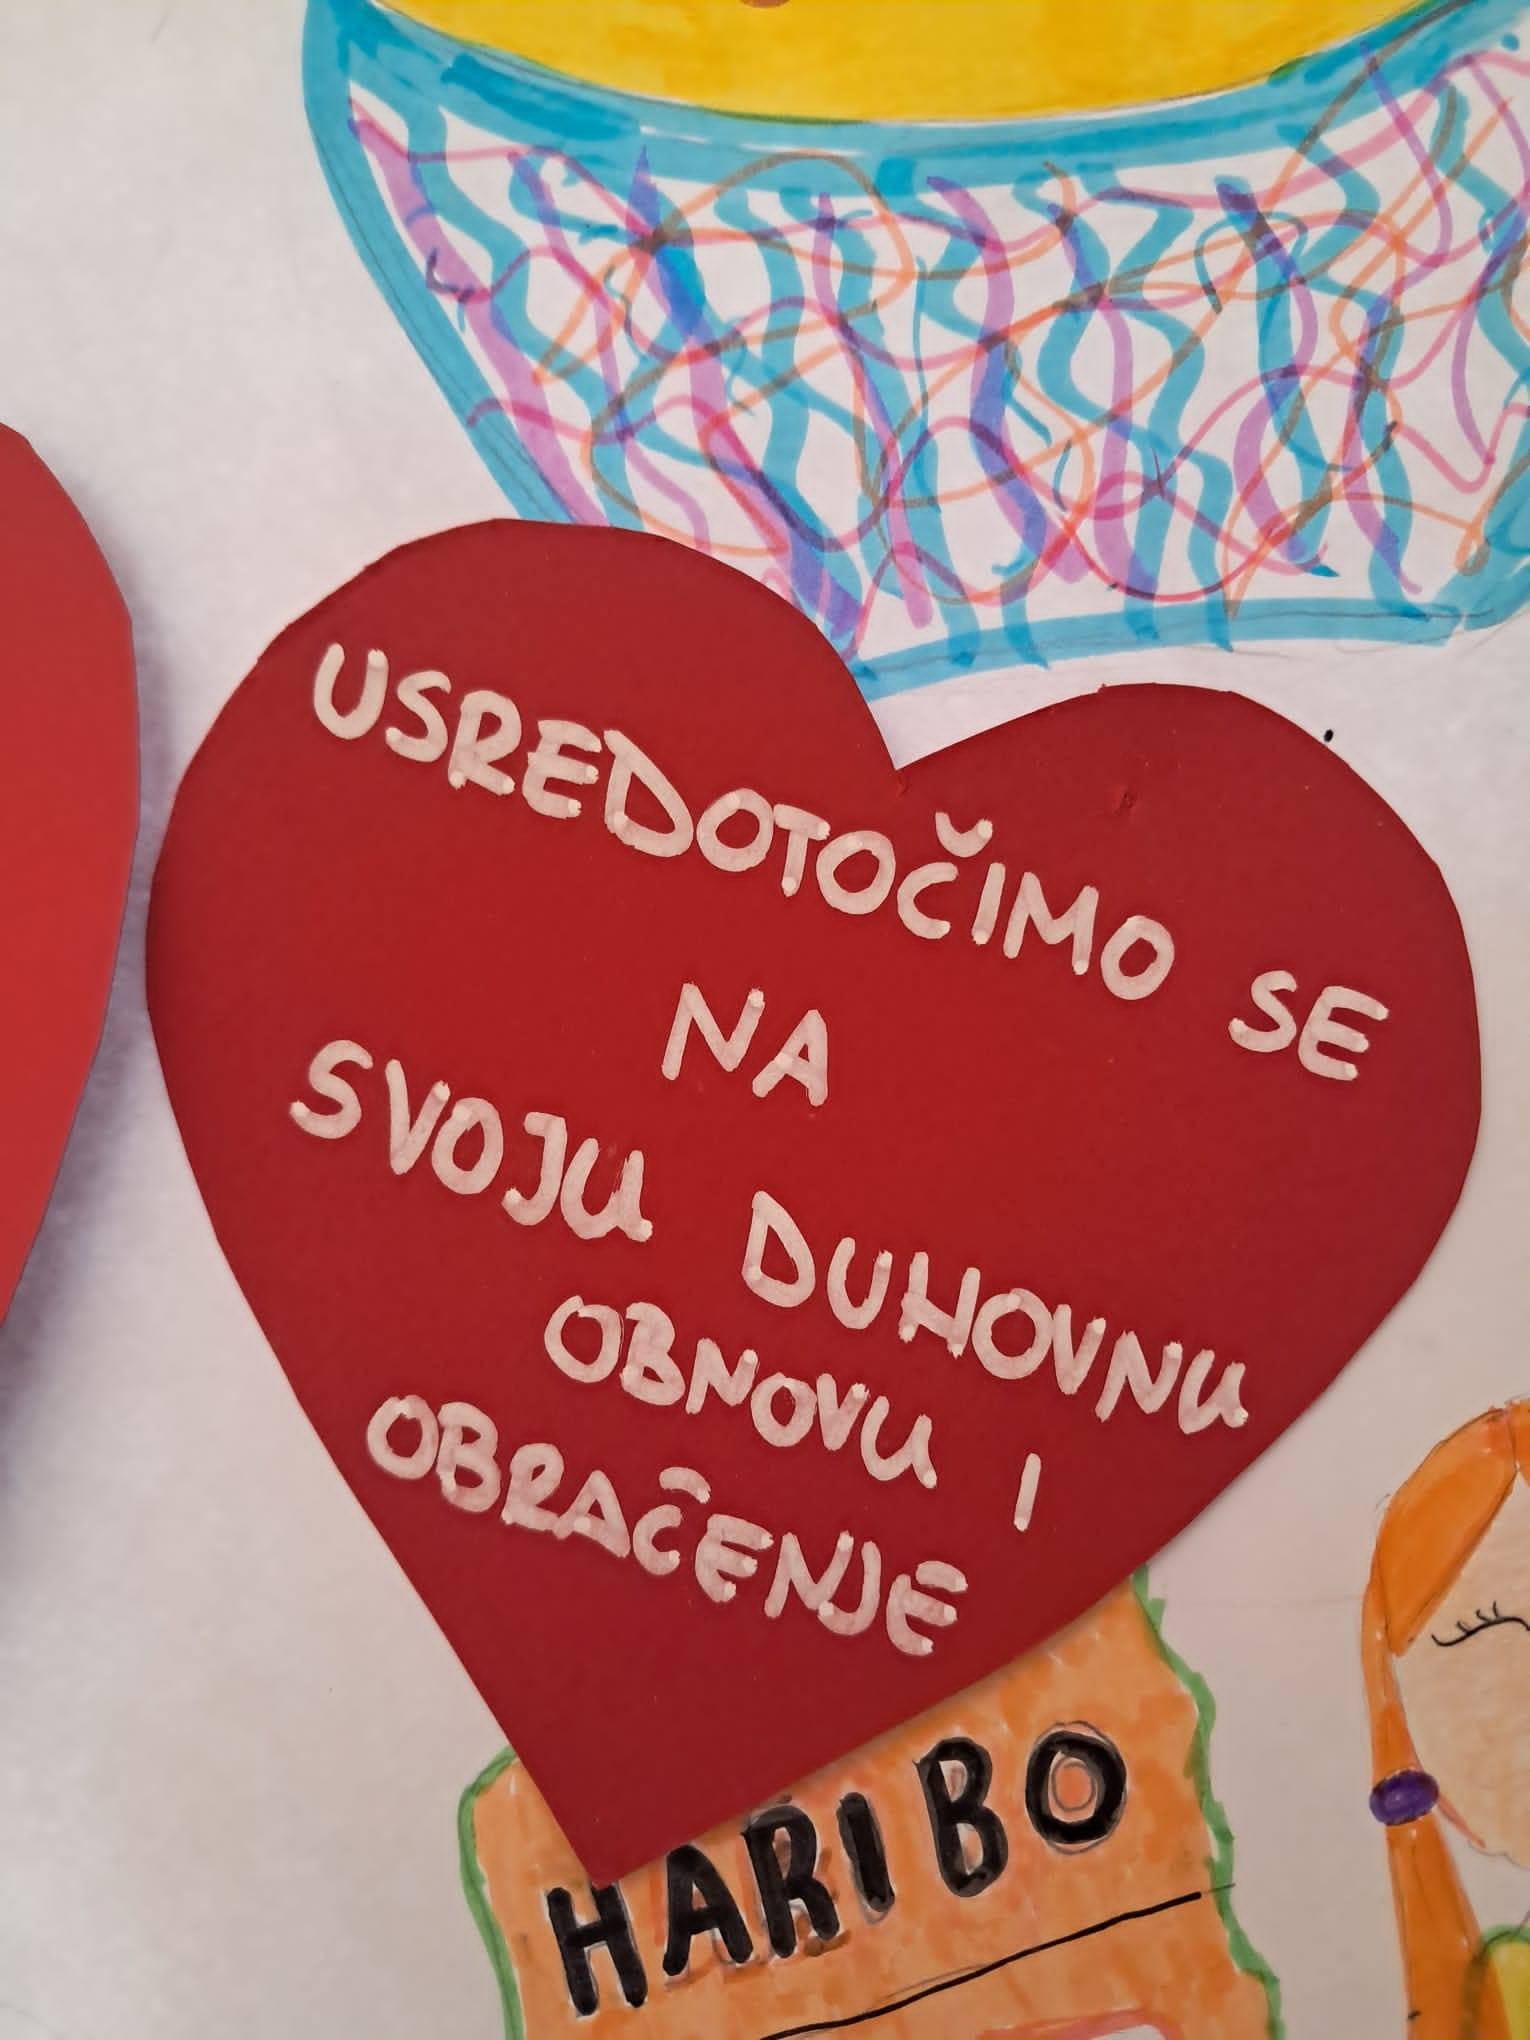 USREDOTOČIMO SE
NA
SVOJU DUHOVNU
OBNOVU I
OBRAČENJE
HARIBO